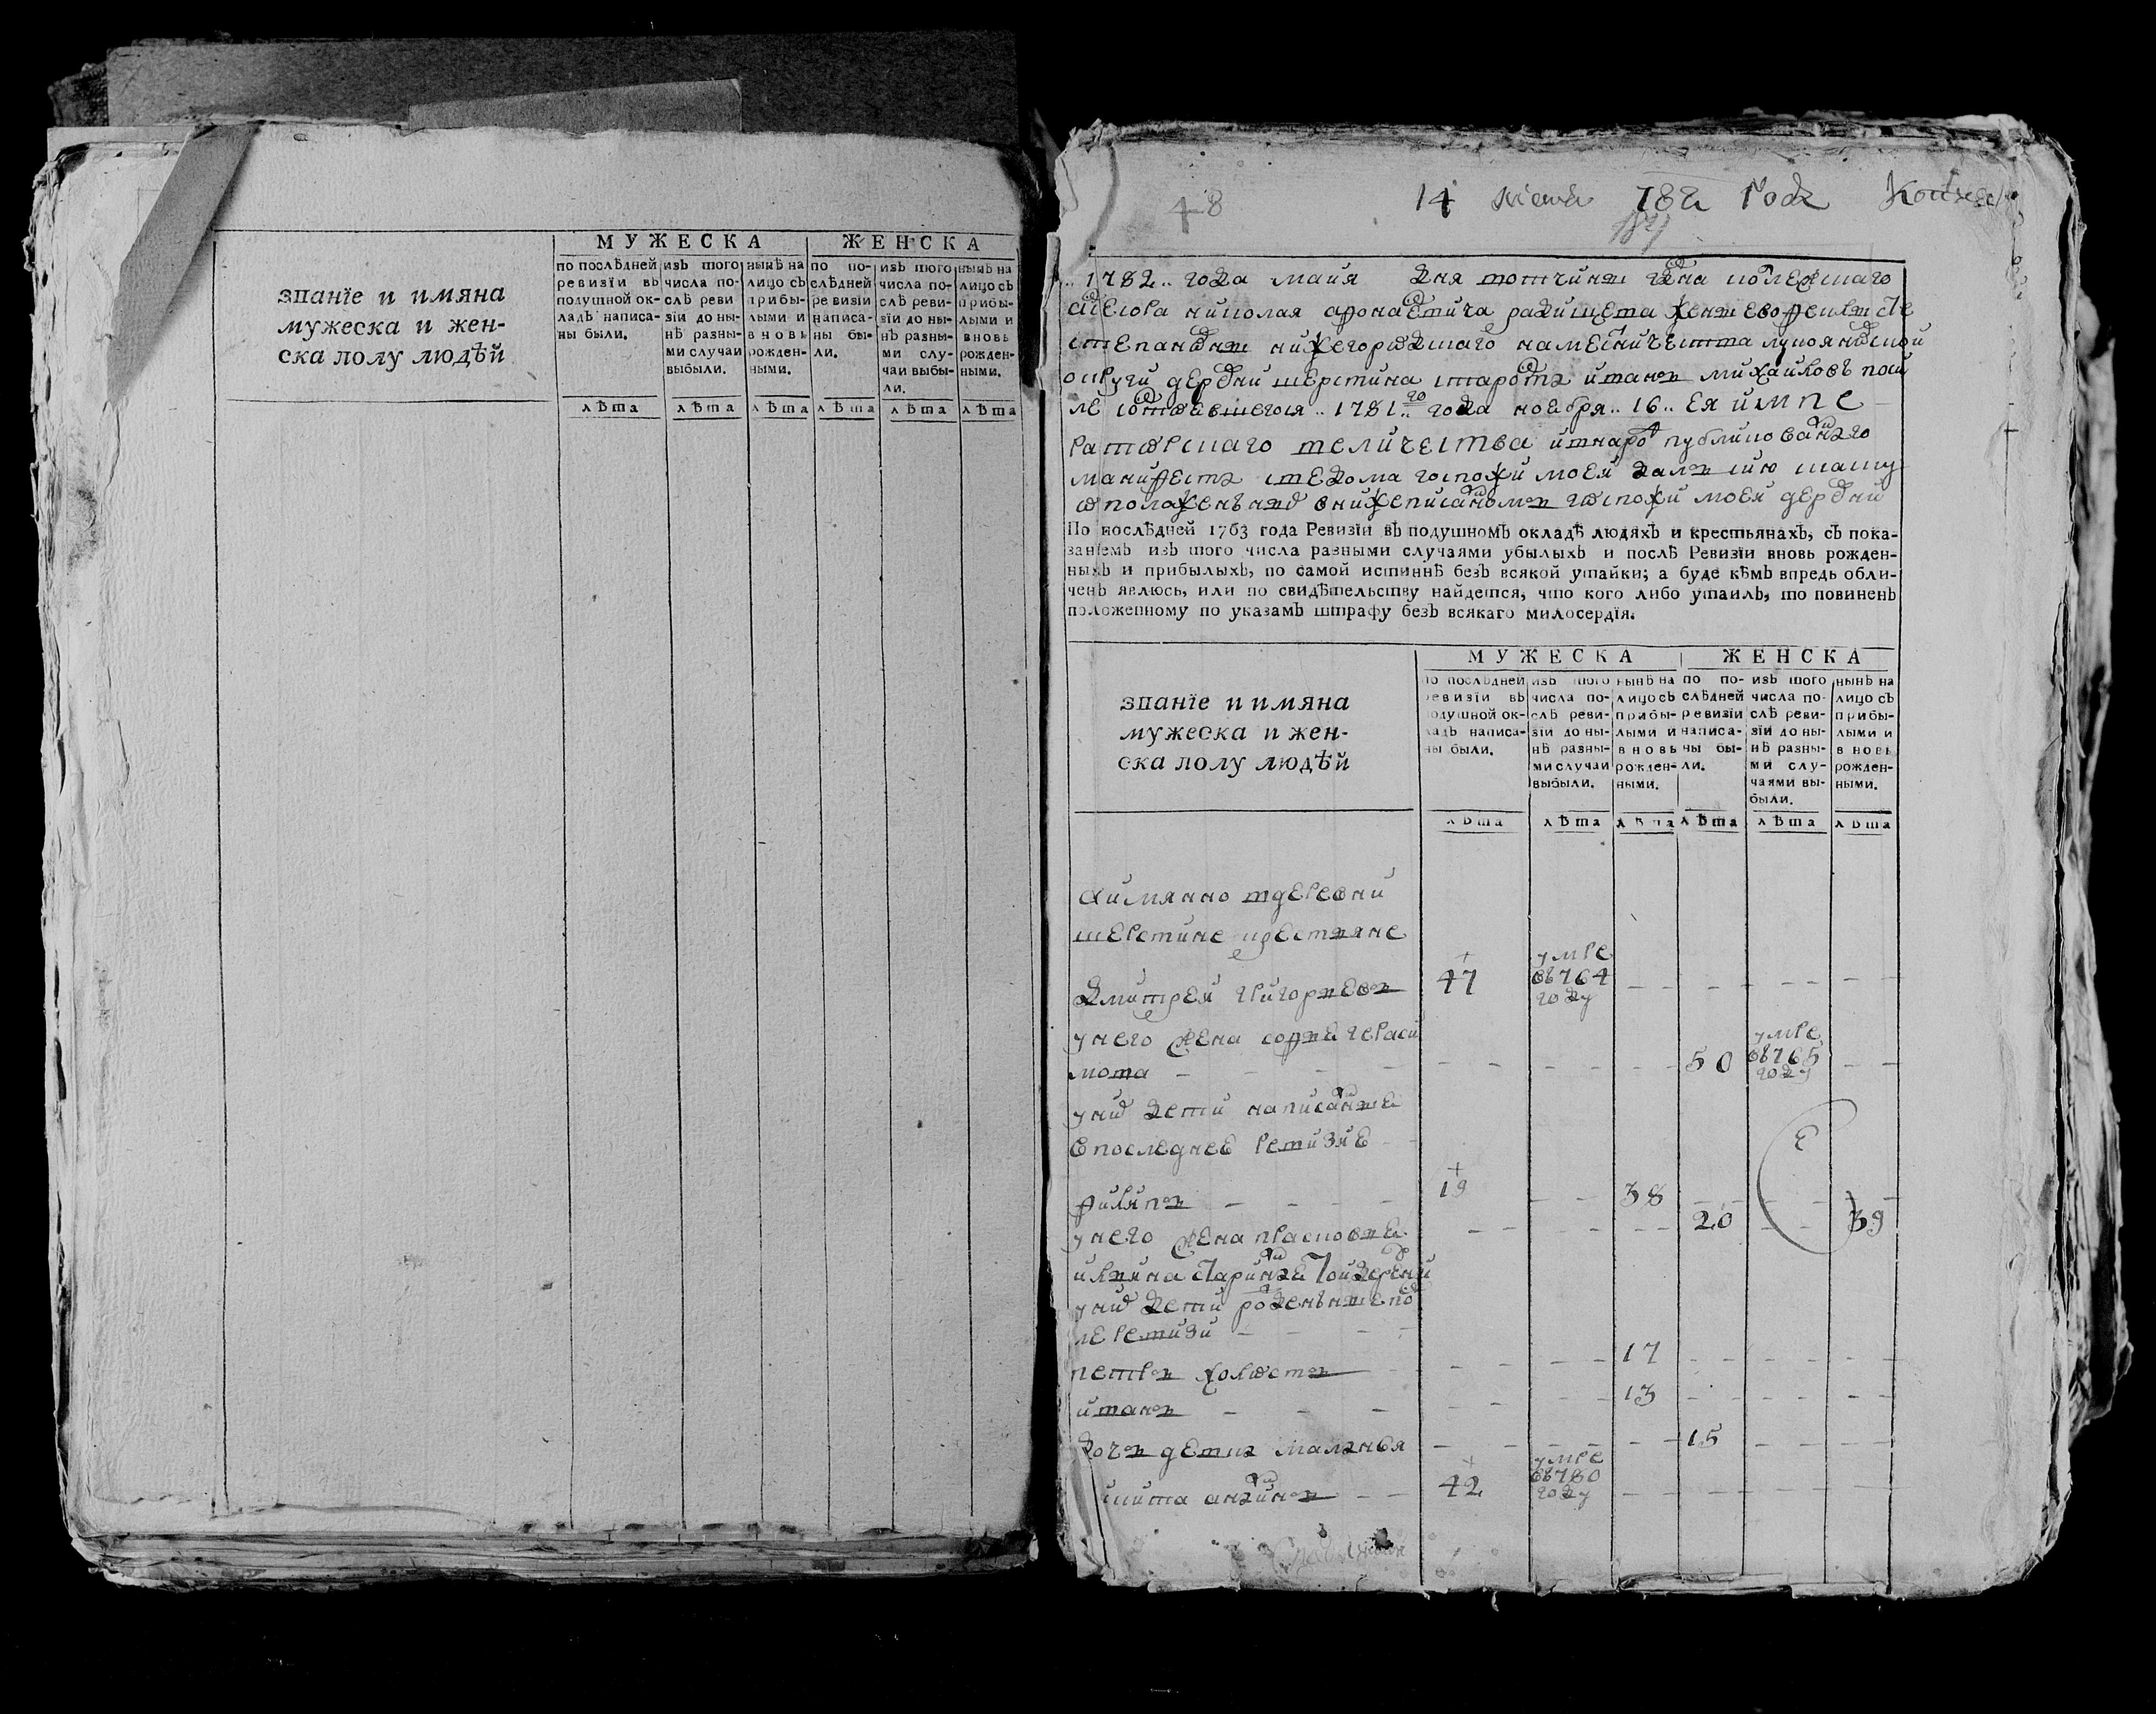 МУЖЕСКА ЖЕНСКА
званїе и имяна
мужеска и жен-
ска полу людѣй
по послѣдней
ревизїи въ
подушной ок-
ладѣ написа-
ны были.
изъ того
числа по-
слѣ реви
зїи до ны-
нѣ разны-
ми случаи
выбыли.
нынѣ на
лицо съ
прибы-
лыми и
вновь
рожден-
ными.
по по-
слѣдней
ревизїи
написа-
ны бы-
ли.
изъ того
числа по-
слѣ реви-
зїи до ны-
нѣ разны-
ми слу-
чаи выбы-
ли.
нынѣ на
лицо съ
прибы-
лыми и
вновь
рожден-
ными.
лѣта лѣта лѣта лѣта лѣта лѣта
48 14 782 года
1782 года майя дня вотчины
николая жены ево
степановны нижегороцкого наместничества лукояновской
округи деревни шерстина староста иван михайловъ
1781 года ноября 16 ея импе
раторскаго величества публикованного
манифеста с ведома госпожи моей дал сию скаску
о положенных в нижеписанном госпожи моей деревни
По послѣдней 1763 года Ревизїи въ подушномъ окладѣ людяхъ и крестьянахъ, съ пока-
занїемъ изъ того числа разными случаями убылыхъ и послѣ Ревизїи вновь рожден-
ныхъ и прибылыхъ, по самой истиннѣ безъ всякой утайки; а буде кѣмъ впредь обли-
ченъ явлюсь, или по свидѣтельству найдется, что кого либо утаилъ, то повиненъ
положенному по указамъ штрафу безъ всякаго милосердїя.
МУЖЕСКА ЖЕНСКА
званїе и имяна
мужеска и жен-
ска полу людѣй
по послѣдней
ревизїи въ
подушной ок-
ладѣ написа-
ны были.
изъ того
числа по-
слѣ реви-
зїи до ны-
нѣ разны-
ми случаи
выбыли.
нынѣ на
лицо съ
прибы-
лыми и
вновь
рожден-
ными.
по по-
слѣдней
ревизїи
написа-
ны бы-
ли.
изъ того
числа по-
слѣ реви-
зїи до ны-
нѣ разны-
ми слу-
чаями вы-
были.
нынѣ на
лицо съ
прибы-
лыми и
вновь
рожден-
ными.
лѣта лѣта лѣта лѣта лѣта лѣта
а имянно в деревни
шерстине крестьяне
дмитрей григорьев 47 умре въ 764 году
у него жена софья гераси
мова 50 умре въ 765 году
у них дети написанные
в последнее ревизие
филип 19 38
у него жена прасковья 20 39
у них дети рожденные пос
ле ревизи
петр холост 17
иван 13
доч девка маланья 15
никита 42 умре въ 780 году